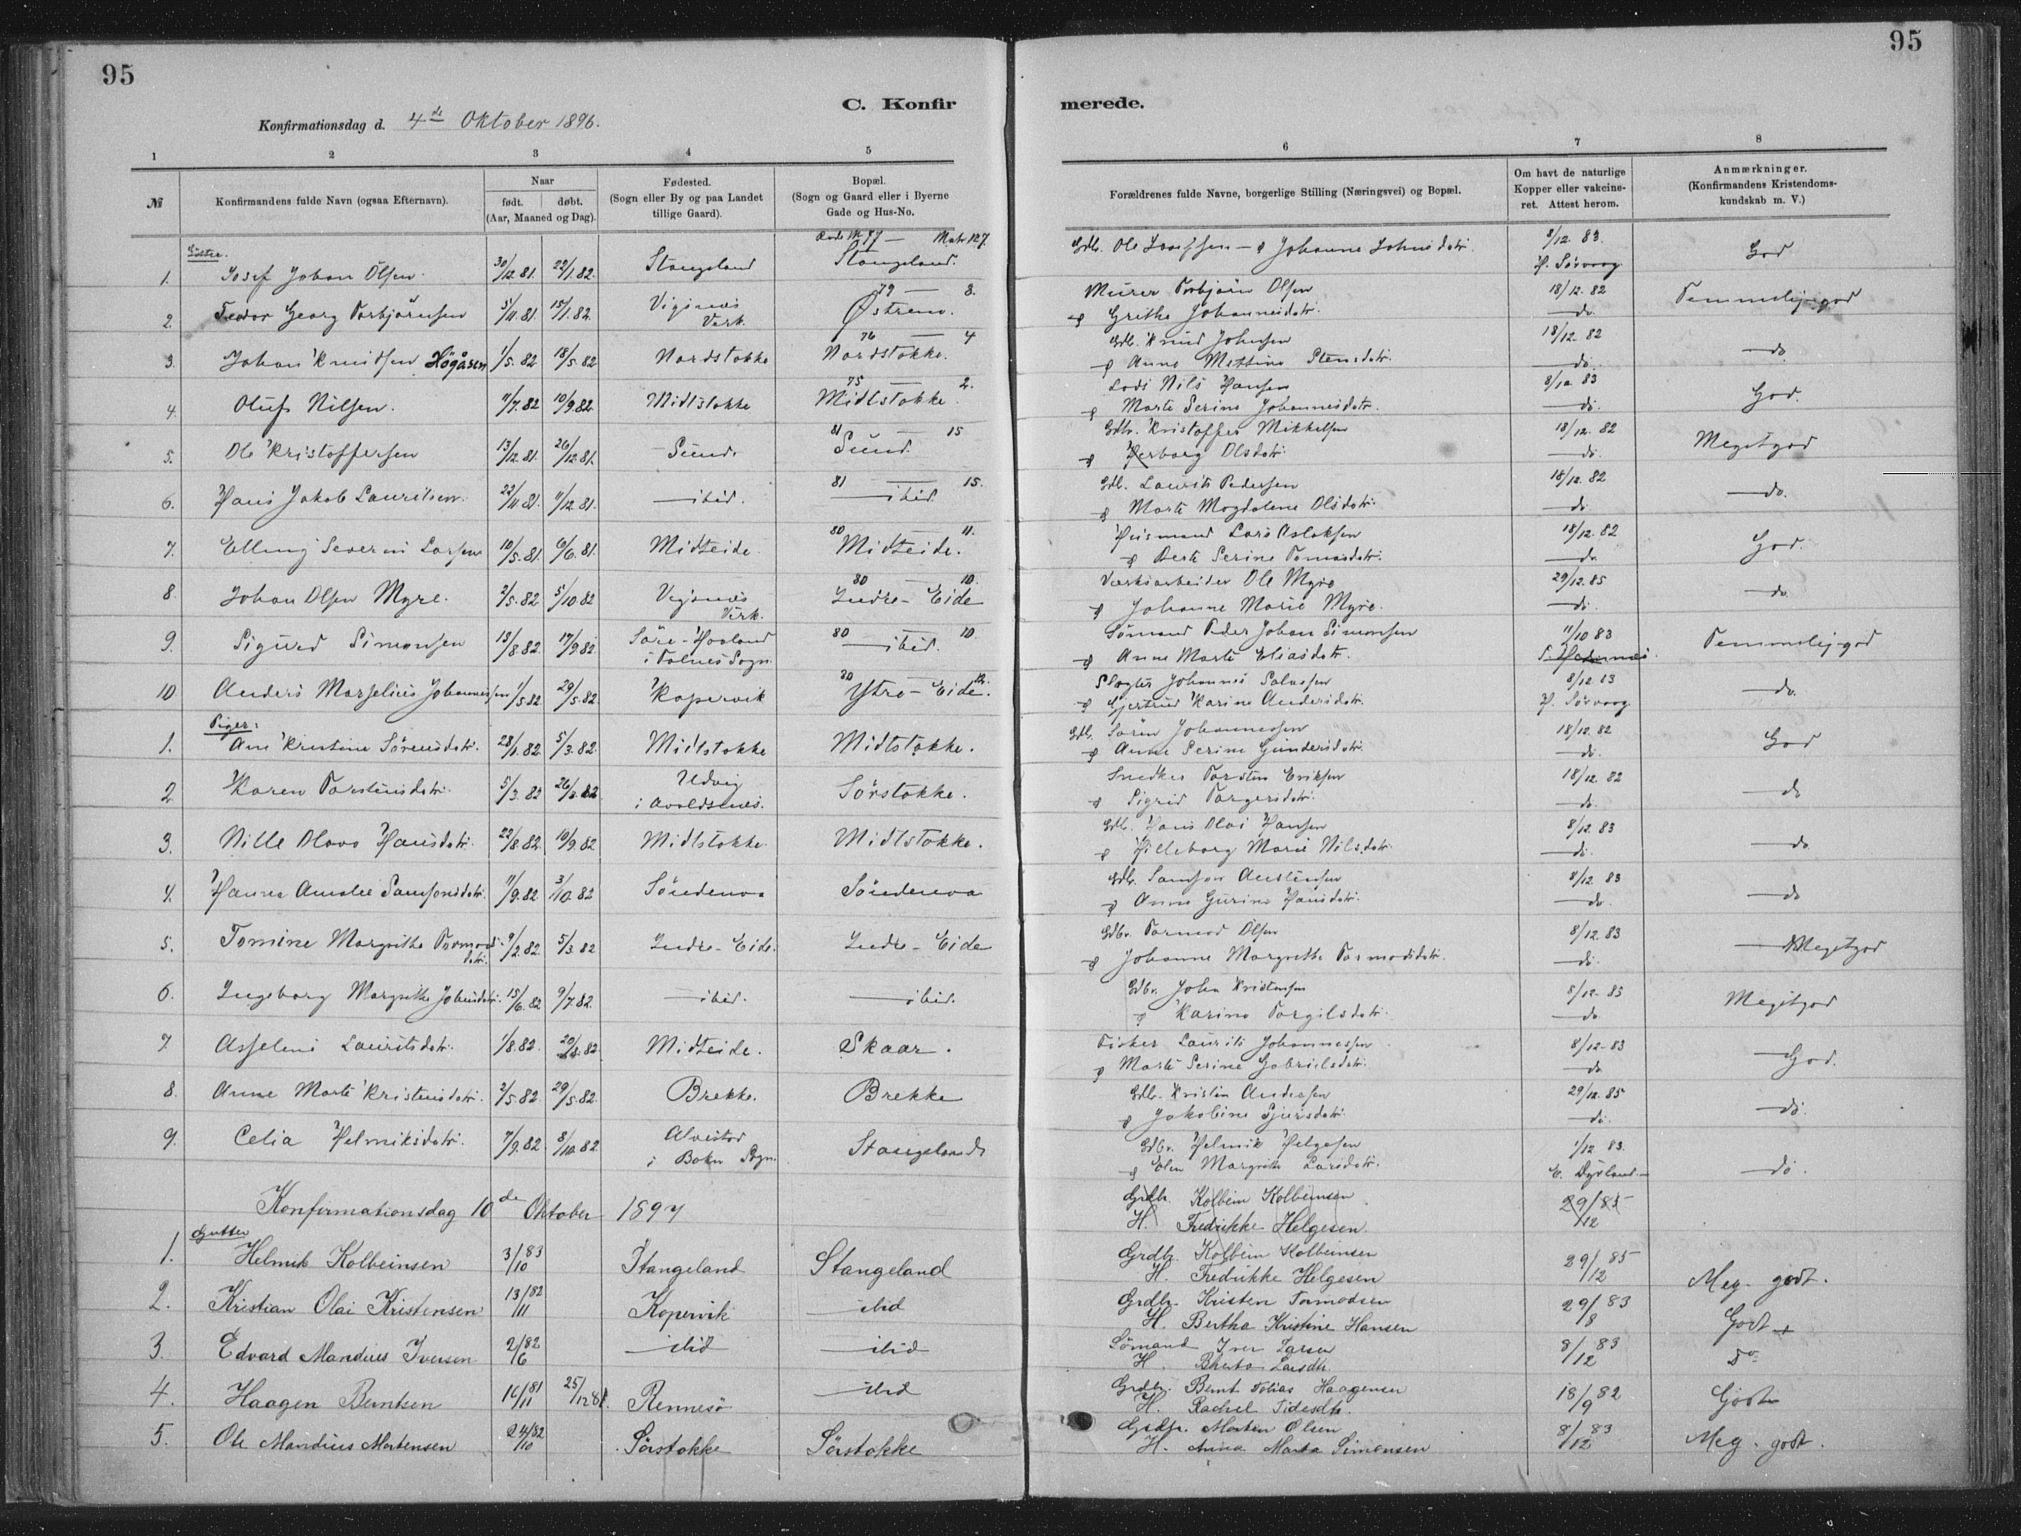 95
95
C. Konfirmerede.
Konfirmationsdag d. 4de Oktober 1896.
1 2 3 4 5 6 7 8
№ Konfirmandens fulde Navn (ogsaa Efternavn).
Naar født. døbt. (Aar, Maaned og Dag).
Fødested. (Sogn eller By og paa Landet tillige Gaard).
Bopæl. (Sogn og Gaard eller i Byerne Gade og Hus-No.
Forældrenes fulde Navne, borgerlige Stilling (Næringsvei) og Bopæl.
Om havt de naturlige Kopper eller vakcineret. Attest herom.
Anmærkninger. (Konfirmandens Kristendomskundskab m. V.)
1. Josef Johan Olsen 30/12.81. 22/1.82. Stangeland Stangeland. Gdb. Ole Josefsen - Johanne Johnsdatr. 8/12.83. God
2. Georg Torbjörnsen 5/11.81. 15/1.82. Vigsnæs Verk. 79 — 8. Østrem. Murer Torbjörn Olsen Grithe Johannesdatr. 18/12.82 do. Temmelig god
3. Johan Knudsen Högåsen 1/5.82 18/5.82 Nordstokke 76 — 4 Nordstokke. Gdb. Knud Johnsen Anne Mettine Stensdatr. 18/12.82 do. do
4. Oluf Nilsen. 11/7.82 10/9.82. Midtstokke 75 — 2. Midtstokke. Nils Hansen Marte Serine Johannesdatr. 8/12 83 do. God.
5. Ole Kristoffersen 13/12.81. 26/12.81. Sund. 81 — 15 Sund. Gdbr. Kristoffer Mikkelsen Herborg Olsdatr. 18/12.82 do. Megetgod
6. Hans Jakob Lauritsen. 22/11.81. 11/12.81. ibid. 81 — 15. ibid Gdb. Laurits Pedersen Marte Magdalene Olsdatr. 18/12.82 do. do.
7. Elling Severin Larsen 10/5.81. 6/6.81. Midteide. 80 — 11. Midteide. Husmand Lars Aslaksen Berte Serine Tomasdatr. 18/12.82 do. God.
8. Johan Olsen Myre. 2/5.82. 5/10.82 Vigsnæs Verk. 80 — 10. Indre-Eide Værksarbeider Ole Myre Johanne Marie Myre. 29/12.85 do. do.
9. Sigurd Simonsen 13/8.82. 17/9.82. Söre-Haaland i Falnes Sogn. 80 — 10. ibid. Sømand Peder Johan Simonsen Anne Marte Eliasdatr. 11/10 83 Temmelig god
10 Anders Marselius Johannessen 1/5.82 29/5.82 Kopervik Ytre-Eide. Slagter Johannes Salvesen Gjertrud Karine Andersdatr. 8/12 83 do.
Piger:
1. Ane Kristine Sörensdatr. 28/1.82. 5/3.82. Midtstokke Midtstokke. Gdb. Sören Johannessen Anne Serine Gundersdatr. 18/12.82 do. God
2 Karen Torstensdatr. 5/3.82 26/3.82 Udvig i Avaldsnes. Sörstokke. Snedker Torsten Eriksen Sigrid Torgersdatr. 18/12.82 do. do
3. Nille Olava Hansdatr. 22/8.82. 10/9.82 Midtstokke Midtstokke. Gdb. Hans Olai Hansen Hilleborg Marie Nilsdatr. 8/12.83 do. do
4. Hanna Amalie Samsonsdatr. 11/9.82 3/10.82 Söndenaa Söndenaa Gdb. Samson Austensen Anne Gurine Hansdatr. 8/12 83 do. do
5. Tomine Margrethe Tormodsdatr. 9/2.82. 5/3.82 Indre-Eide. Indre-Eide Gdbr. Tormod Olsen Johanne Margrethe Tormodsdatr. 8/12.83 do. Megetgod
6. Ingeborg Margrethe Johnsdatr. 15/6.82 9/7.82. ibid. ibid. Gdbr. John Kristensen Karine Torgilsdatr. 8/12-83 do Megetgod
7. Asseline Lauritsdatr. 1/8.82. 20/8.82. Midteide. Skaar. Fisker Laurits Johannessen Marte Serine Gabrielsdatr. 8/12-83 do God.
8. Anne Marte Kristensdatr. 2/5.82 29/5.82. Brekke. Brekke Gdb. Kristen Andersen Jakobine Sjursdatr. 29/12.85 do. do.
9. Celia Helmiksdatr. 7/9.82 8/10.82 Alvestad i Bokn Sogn. Stangeland Gdbr. Helmik Helgesen Elen Margrethe Larsdatr. 1/12 83 E. Dysland do.
Konfirmationsdag 10de Oktober 1897
Grdbr. Kolbein Kolbeinsen H. Fredrikke Helgesen. 29/12 85
Gutter
1. Helmik Kolbeinsen 3/10 83 Stangeland Stangeland Grdbr. Kolbein Kolbeinsen H. Fredrikke Helgesen 29/12 85 Meg. godt.
2. Kristian Olai Kristensen 13/11 82 Kopervik ibid Grdbr. Kristen Tormodsen H. Bertha Kristine Hansen 29/8 83 Godt
3. Edvard Mandius Iversen 2/6 82 ibid ibid Sømand Iver Larsen H. Berta Larsdtr. 8/12 83 Do
4. Haagen Berntsen 16/11 81 25/12 81 Rennesö ibid Grdbr. Bernt Tobias Haagensen H. Rachel 18/9 82 Godt
5. Ole Mandius Mortensen 24/10 82 Sörstokke Sörstokke Grdbr. Morten Olsen H. Anna Marta Simonsen 8/12 83 Meg. godt.